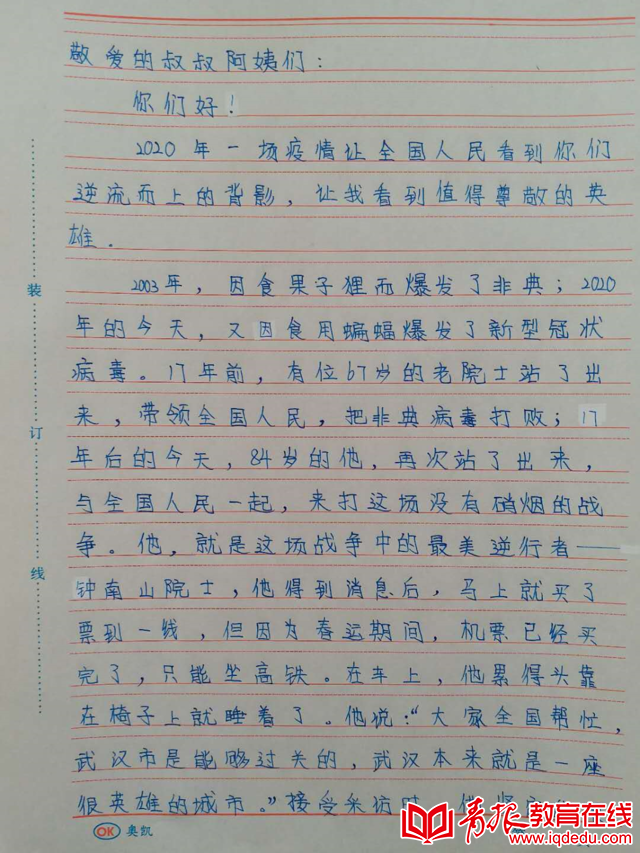 敬爱的叔叔阿姨们：
你们好！
2020年一场疫情让全国人民看到你们
逆流而上的背影，让我看到值得尊敬的英
雄．
2003年，因食果子狸而爆发了非典；2020
年的今天，又因食用蝙蝠爆发了新型冠状
病毒。17年前，有位67岁的老院士站了出
来，带领全国人民，把非典病毒打败；17
年后的今天，84岁的他，再次站了出来，
与全国人民一起，来打这场没有硝烟的战
争。他，就是这场战争中的最美逆行者——
钟南山院士，他得到消息后，马上就买了
票到一线，但因为春运期间，机票已经买
完了，只能坐高铁。在车上，他累得头靠
在椅子上就睡着了。他说：“大家全国帮忙，
武汉市是能够过关的，武汉本来就是一座
很英雄的城市。”接受采访时，他
装
订
线
OK 奥凯
青报教育在线
www.iqdedu.com